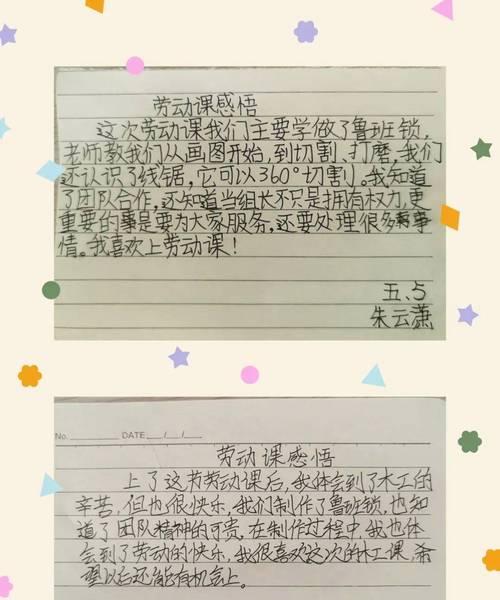 劳动课感悟
这次劳动课我们主要学做了鲁班锁,
老师教我们从画图开始,到切割、打磨,我们
还认识了线锯,它可以360°切割。我知道
了团队合作,还知道当组长不只是拥有权力,更
重要的事是要为大家服务,还要处理很多事
情。我喜欢上劳动课!
五、5
朱云潇
No. DATE / /
劳动课感悟
上了这节劳动课后,我体会到了木工的
辛苦,但也很快乐,我们制作了鲁班锁,也知
道了团队精神的可贵,在制作过程中,我也体
会到了劳动的快乐,我很喜欢这次的木工课,希
望以后还能有机会上。